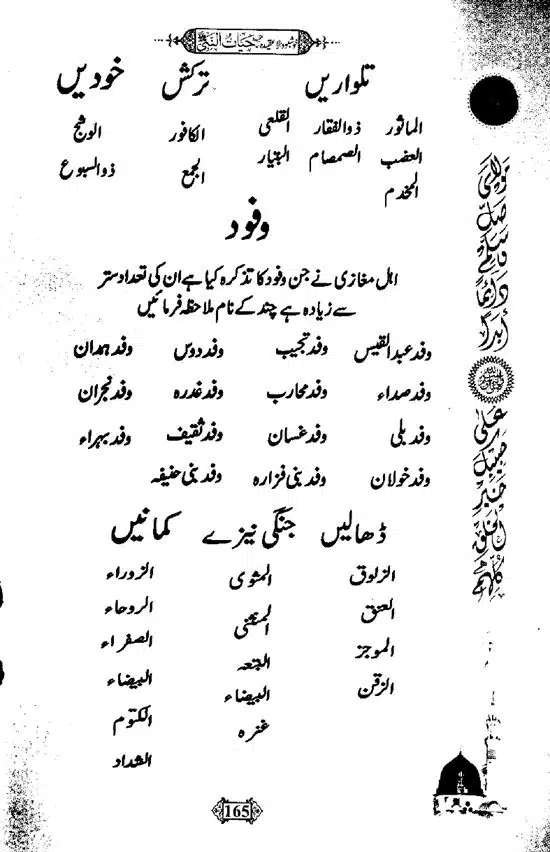 حیات النبی
تلواریں ترکش خودیں
الماثور ذوالفقار القلعی الکافور الوشح
العضب الصمصام البتار الجمع ذوالسبوع
المخدم
وفود
اہل مغازی نے جن وفود کا تذکرہ کیا ہے ان کی تعداد ستر
سے زیادہ ہے چند کے نام ملاحظہ فرمائیں
وفد عبدالقیس وفد تجیب وفد دوس وفد ہمدان
وفد صداء وفد محارب وفد غدرہ وفد نجران
وفد بلی وفد غسان وفد ثقیف وفد بہراء
وفد خولان وفد بنی فزارہ وفد بنی حنیفہ
ڈھالیں جنگی نیزے کمانیں
الزلوق المثوی الزوراء
العنق المثنی الروحاء
الموجز البتعہ الصفراء
الزقن البیضاء البیضاء
عنزہ الکتوم
الشداد
مولای صل وسلم دائما ابدا
علی حبیبک خیر الخلق کلہم
165